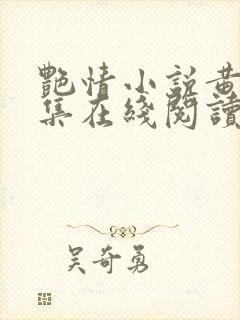 艷情小說黃
集在綫閱讀
吴奇勇